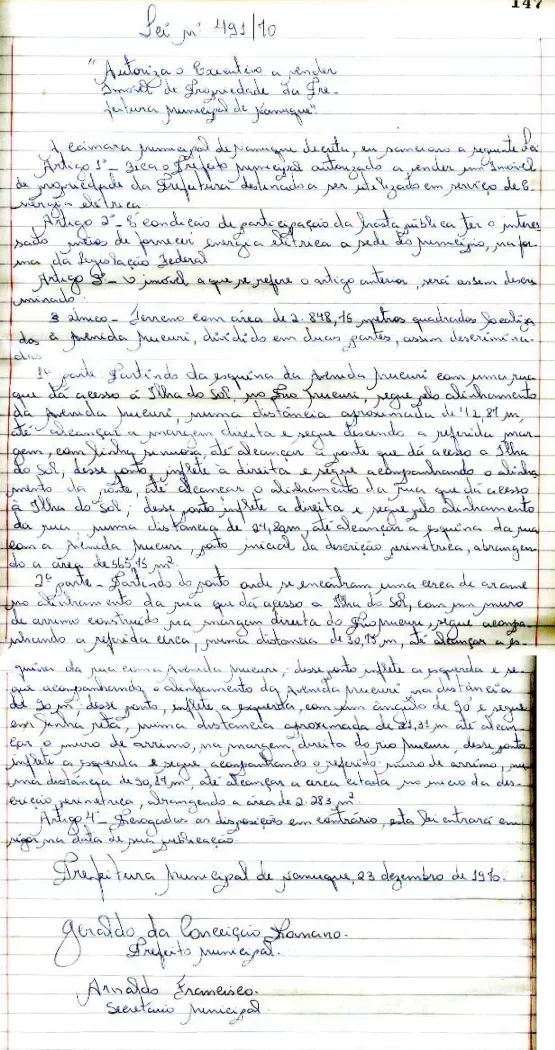 147
Lei nº 491/70
"Autoriza o Executivo a vender
Imóvel de Propriedade da Pre-
feitura Municipal de Nanuque"
A câmara municipal de Nanuque decreta, eu sanciono a seguinte Lei
Artigo 1º - Fica o Prefeito municipal autorizado a vender um Imóvel
de propriedade da Prefeitura destinado a ser utilizado em serviço de E-
nergia elétrica.
Artigo 2º - É condição de participação da hasta pública ter o interes
sado meio de fornecer energia elétrica a sede do município, na for
ma da Legislação Federal
Artigo 3º - O imóvel a que se refere o artigo anterior, será assim descri
minado:
Terreno com área de 2.848,75 metros quadrados localiza
dos à Avenida Mucuri, dividido em duas partes, assim descrimina-
das
1ª parte. Partindo da esquina da Avenida Mucuri com uma rua
que dá acesso á Ilha do Sol, no Rio Mucuri, segue pelo alinhamento
da Avenida Mucuri, numa distância aproximada de 42,87 m,
até alcançar a margem direita e segue descendo a referida mar-
gem, com linha sinuosa, até alcançar a ponte que dá acesso a Ilha
do Sol, desse ponto, inflete à direita e segue acompanhando o alinha
mento da ponte, até alcançar o alinhamento da rua que dá acesso
à Ilha do Sol, desse ponto inflete a direita e segue pelo alinhamento
da rua, numa distância de até alcançar a esquina da rua
com a Avenida Mucuri, ponto inicial da descrição perimétrica, abrangen
do a área de 565,75 m².
2ª parte - Partindo do ponto onde se encontram uma cerca de arame
no alinhamento da rua que dá acesso a Ilha do Sol, com um muro
de arrimo construído na margem direita do Rio Mucuri, segue acompa-
nhando a referida cerca, numa distancia de 30,75 m, até alcançar a es-
quina da rua com a Avenida Mucuri, desse ponto inflete a esquerda e se-
gue acompanhando o alinhamento da Avenida Mucuri na distância
de 90 m, desse ponto, inflete a esquerda, com um ângulo de 90º e segue
em linha reta, numa distancia aproximada de até alcan-
çar o muro de arrimo, na margem direita do rio Mucuri, desse ponto
inflete a esquerda e segue acompanhando o referido muro de arrimo, nu
ma distância de até alcançar a cerca citada no inicio da des-
crição perimetrica, abrangendo a área de 2.283 m².
Artigo 4º - Revogadas as disposições em contrário, esta lei entrará em
vigor na data de sua publicação.
Prefeitura Municipal de Nanuque, 23 dezembro de 1970.
Geraldo da Conceição Romano.
Prefeito Municipal.
Arnaldo Francisco.
Secretario Municipal.